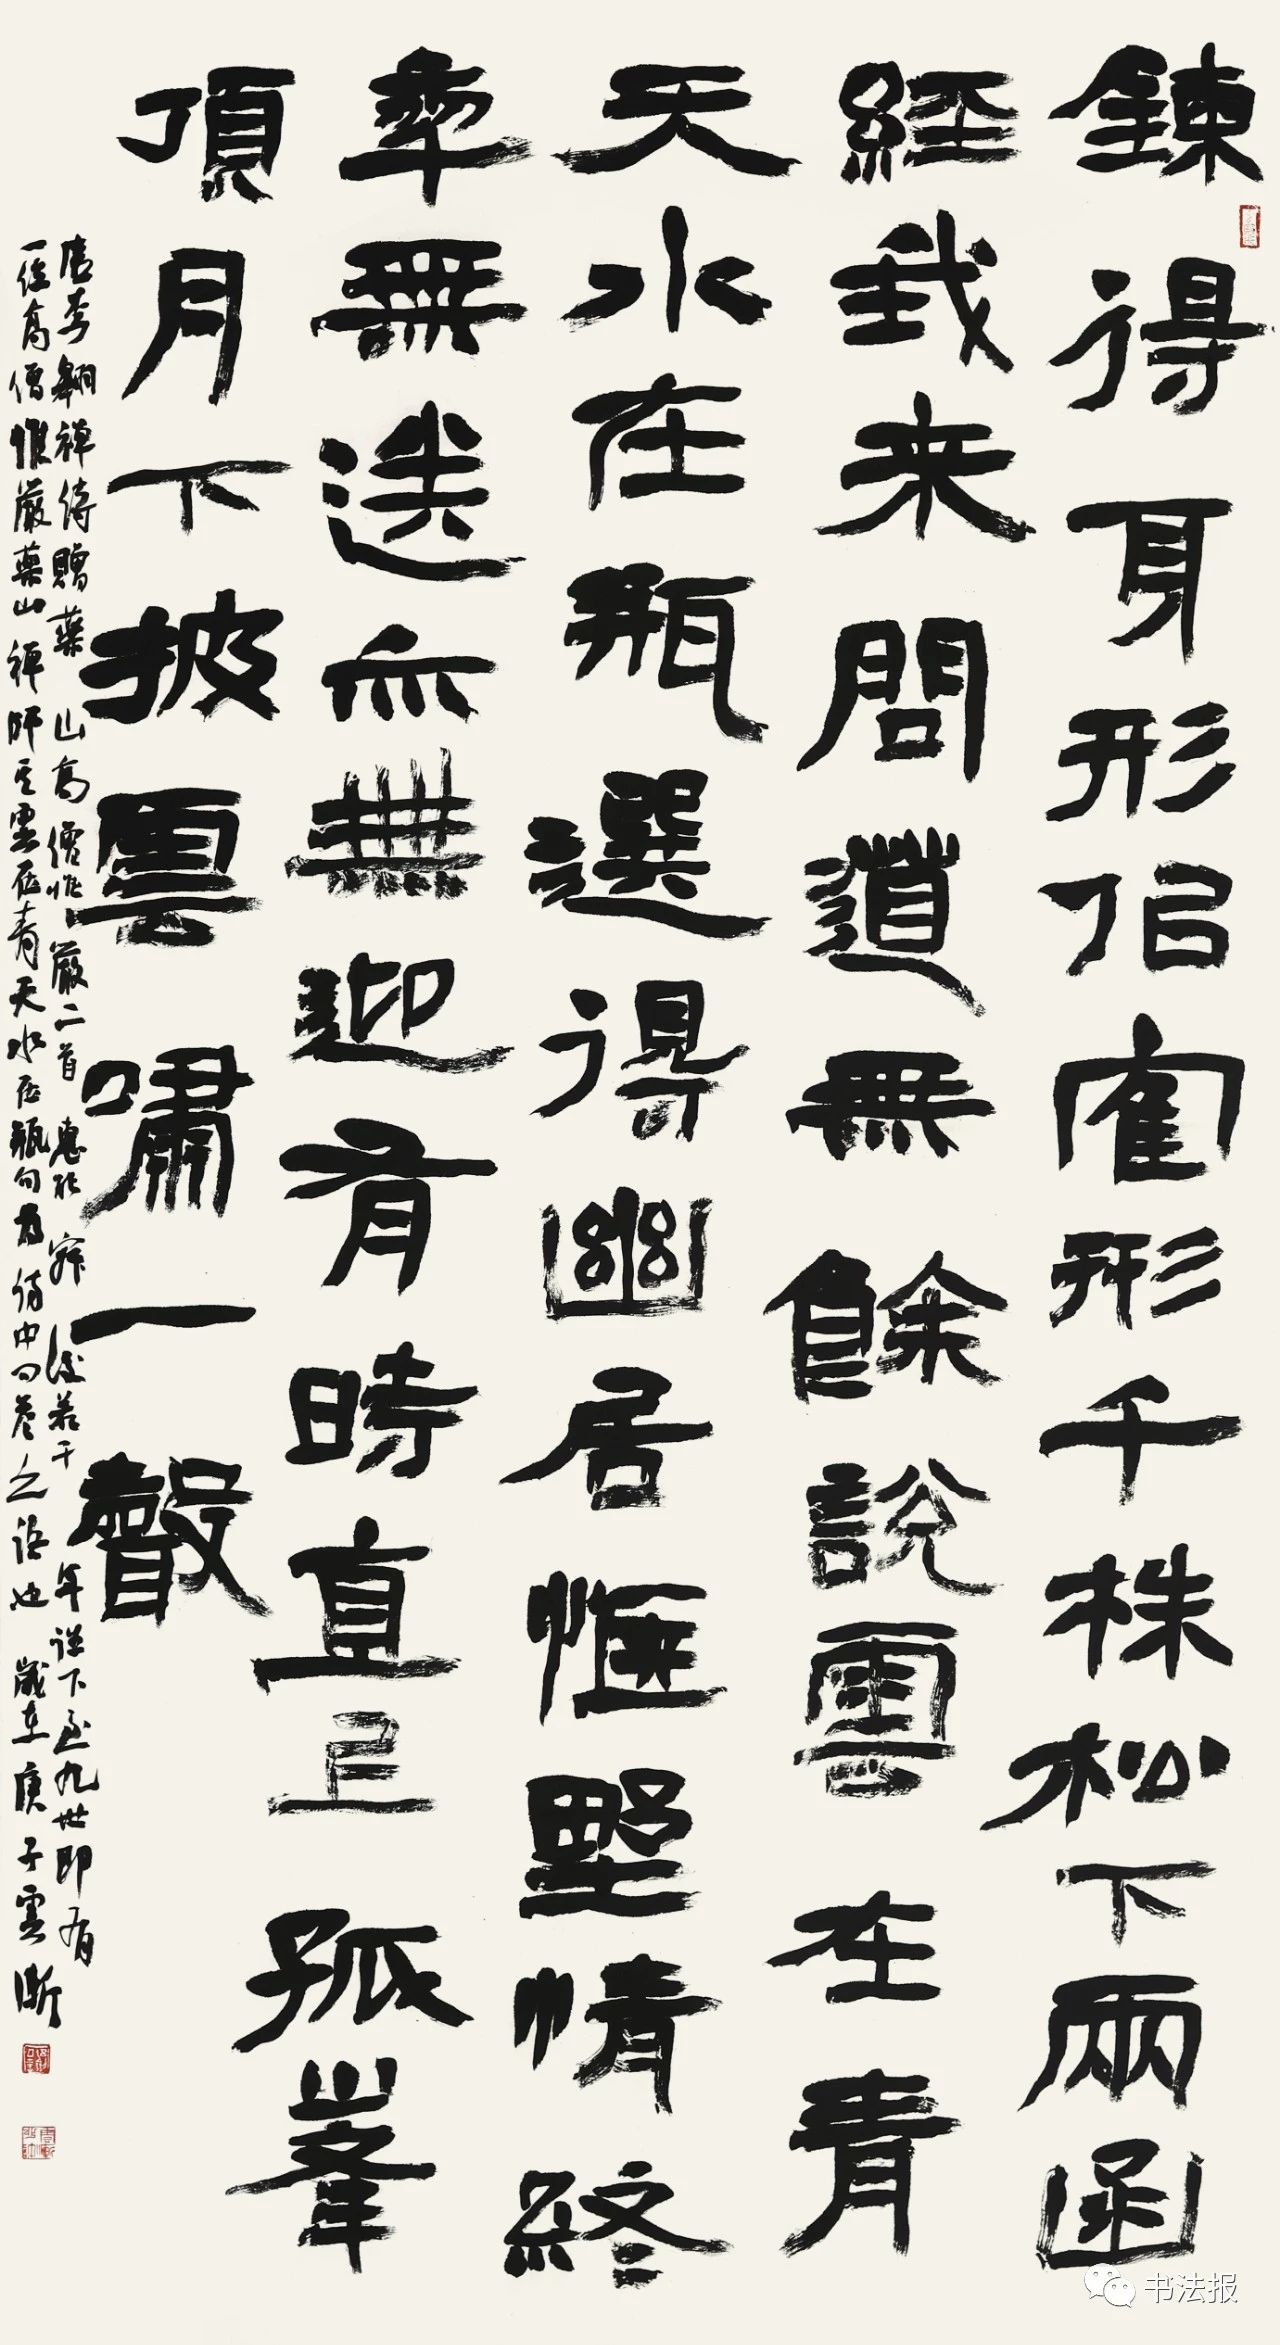 鍊得身形佀隺形千株松下兩函
經我来問道無餘說雲在青
天水在瓶選得幽居愜墅情終
年無送亦無迎有時直上孤峯
頂月下披雲嘯一聲
唐李翱禅詩贈藥山高僧惟嚴二首惠能寂後若干年從下至九世即有
一位高僧惟嚴藥山禅師其雲在青天水在瓶句為詩中問答之語也歲在庚子雲
书法报